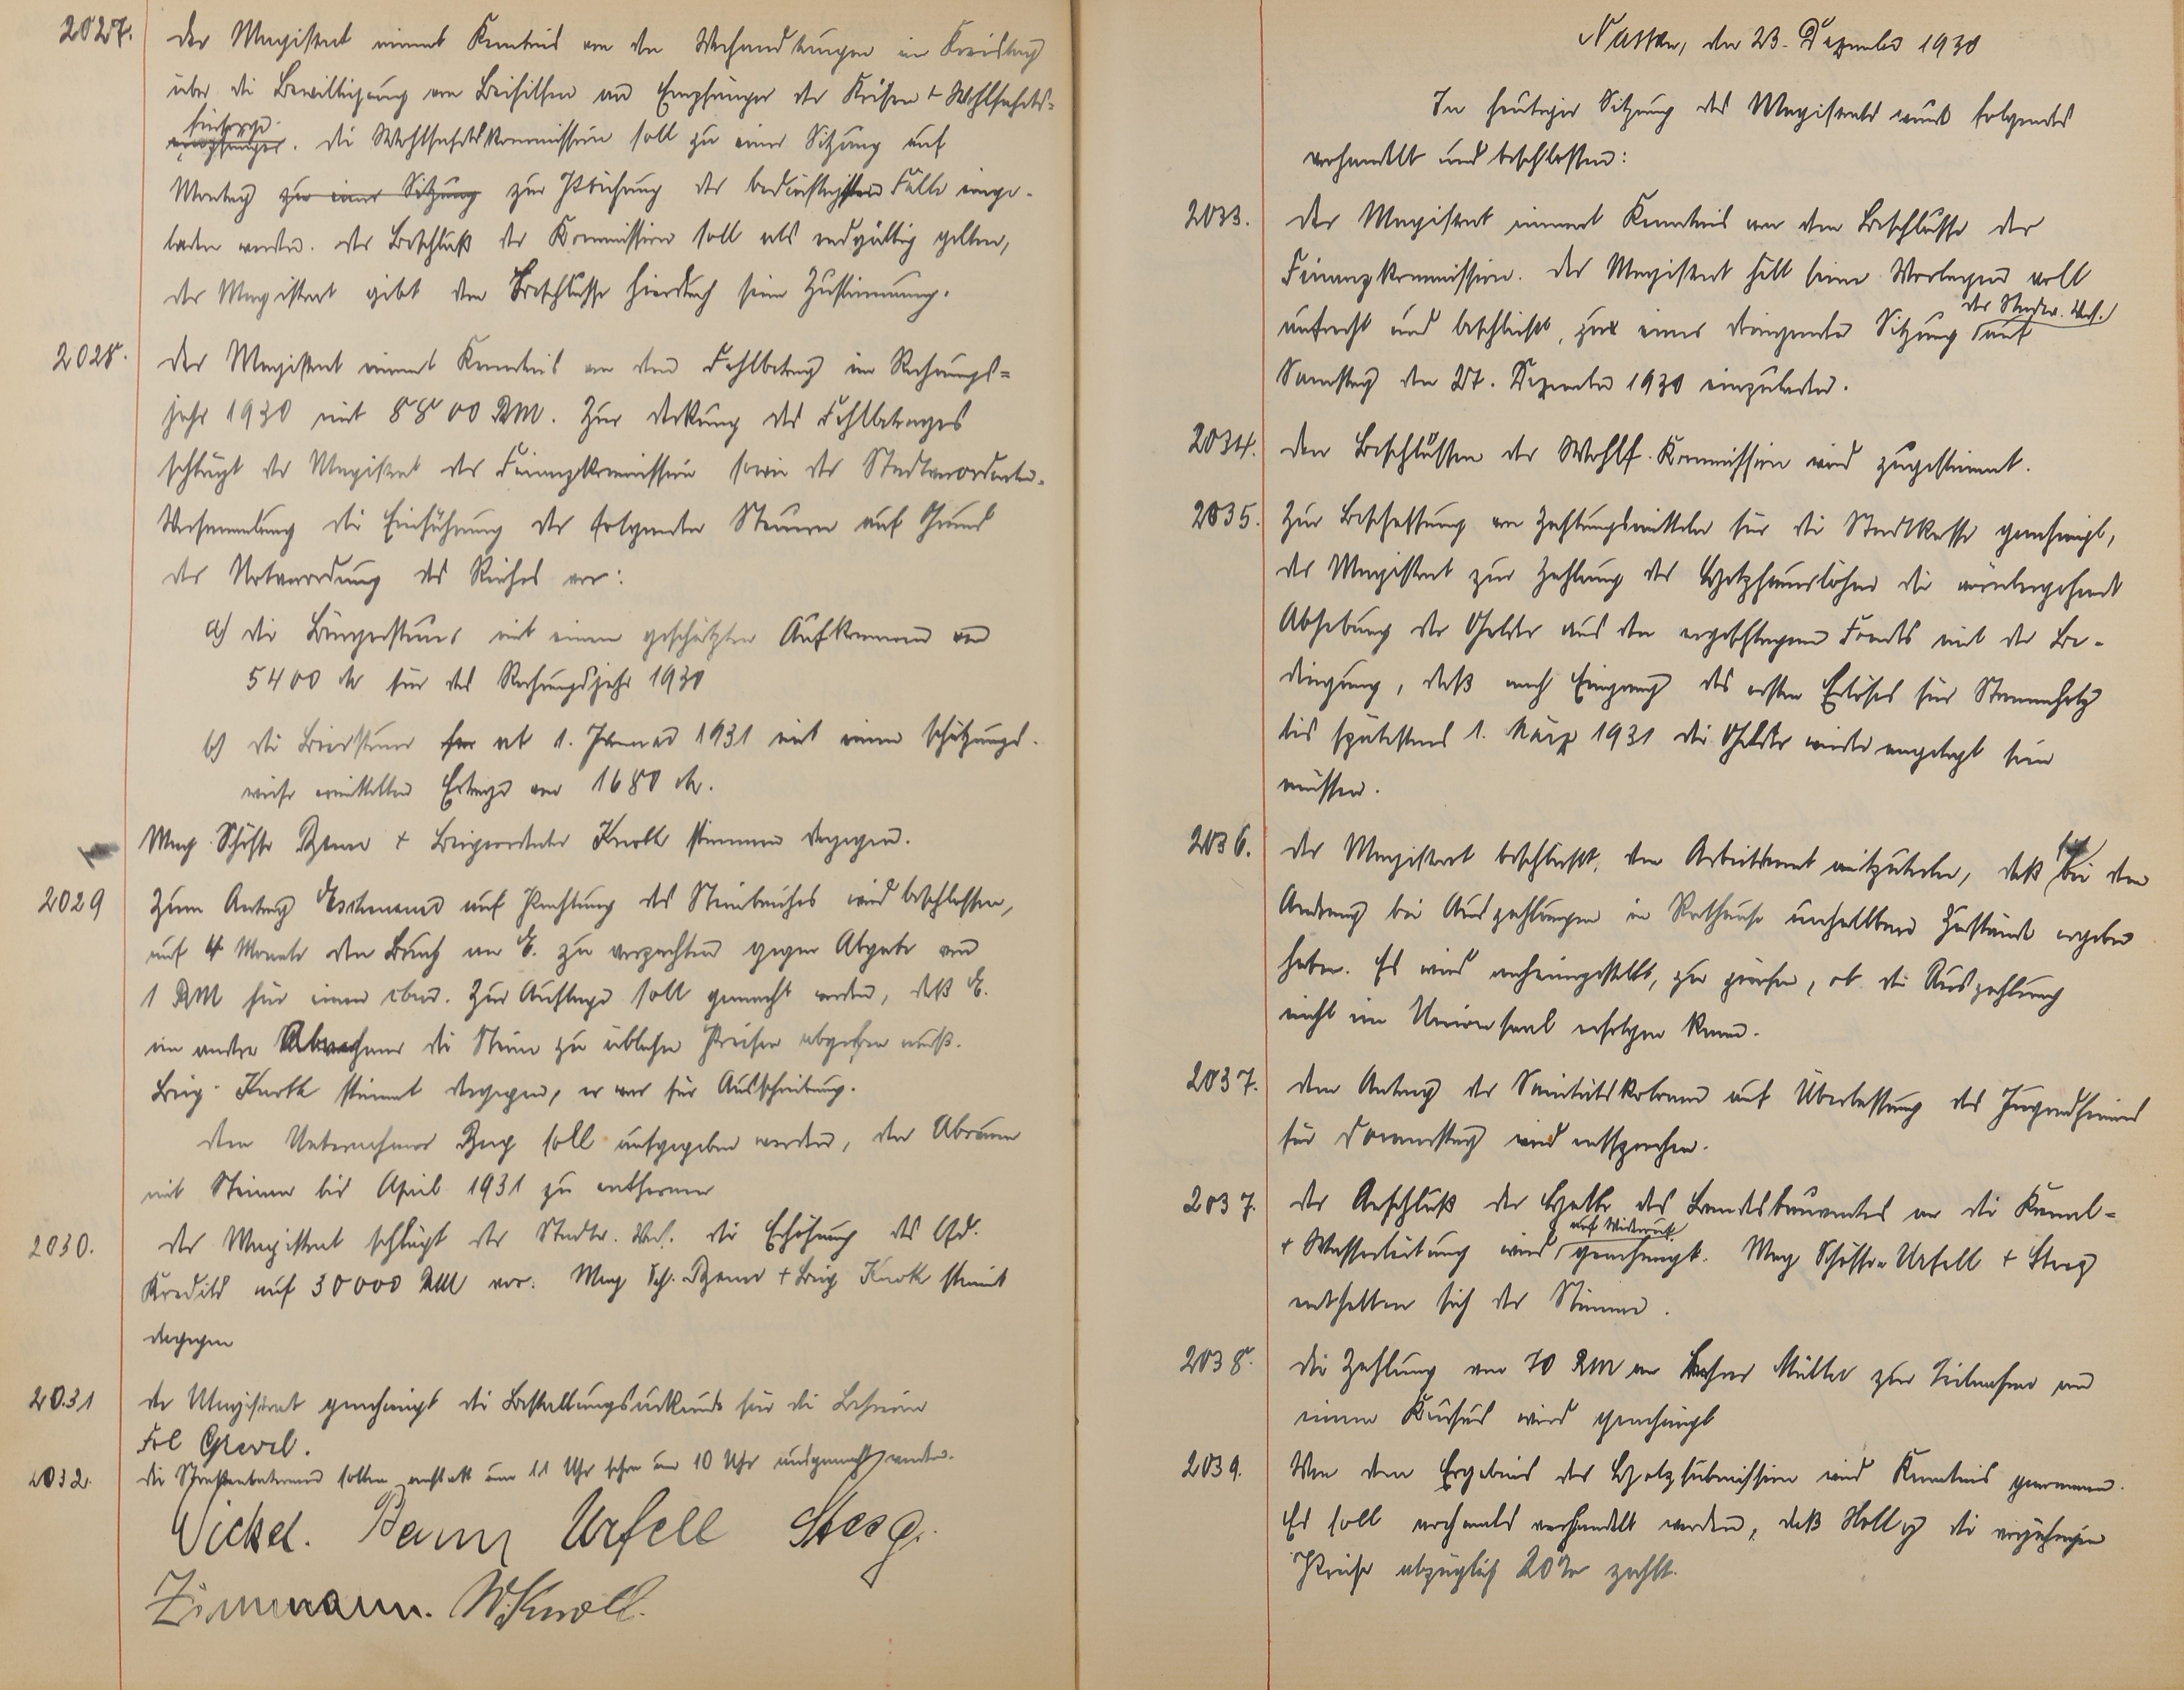 2027. Der Magistrat nimmt Kenntnis von den Verhandlungen im Kreistag
über die Bewilligung von Beihilfen an Empfänger der Krisen + Wohlfahrts-
fürsorge.
empfänger. Die Wohlfahrtskommission soll zu einer Sitzung auf
Montag zu einer Sitzung zur Prüfung der bedürftigsten Fälle einge-
laden werden. Der Beschluß der Kommission soll als endgültig gelten,
der Magistrat gibt dem Beschlusse hierdurch seine Zustimmung.
2028. Der Magistrat nimmt Kenntnis von dem Fehlbetrag im Rechnungs=
jahr 1930 mit 8800 RM. Zur Deckung des Fehlbetrages
schlägt der Magistrat der Finanzkommission sowie der Stadtverordneten-
Versammlung die Einführung der folgenden Steuern auf Grund
der Notverordnung des Reiches vor:
a) die Bürgersteuer mit einem geschätzten Aufkommen von
5400 M für das Rechnungsjahr 1930
b) die Biersteuer ab 1. Januar 1931 mit einem schätzungs-
weise ermittelten Ertrage von 1680 M.
Mag. Schöffe + Beigeordneter Knoll stimmen dagegen.
2029 Zum Antrag auf Pachtung des Steinbruches wird beschlossen,
auf 4 Monate den Bruch an E. zu verpachten gegen Abgabe von
1 RM für einen cbm. Zur Auflage soll gemacht werden, daß E.
an andere Abnehmer die Steine zu üblichen Preisen abgeben muß.
Beig. Knoll stimmt dagegen, er war für Ausschreibung.
Dem Unternehmer soll aufgegeben werden, den Abraum
mit Steinen bis April 1931 zu entfernen
2030. Der Magistrat schlägt der Stadtv. Vers. die Erhöhung des lfd.
Kredits auf 30000 RM vor. Mag. Sch. + Beig. Knoll stimmt
dagegen
2031 Der Magistrat genehmigt die Bestallungsurkunde für die Lehrerin
Frl.
2032. Die Straßenlaternen sollen anstatt um 11 Uhr schon um 10 Uhr ausgemacht werden.
Nickel. Urfell Sterg.
Zimmermann. W. Knoll.
Nassau, den 23. Dezember 1930
In heutiger Sitzung des Magistrats wurde folgendes
verhandelt und beschlossen:
2033. Der Magistrat nimmt Kenntnis von dem Beschlusse der
Finanzkommission. Der Magistrat hält seine Vorlagen voll
der Stadtv. Vers.
aufrecht und beschließt, zu einer dringenden Sitzung auf
Samstag den 27. Dezember 1930 einzuladen.
2034. Den Beschlüssen der Wohlf. Kommission wird zugestimmt.
2035. Zur Beschaffung von Zahlungsmitteln für die Stadtkasse genehmigt,
der Magistrat zur Zahlung der Holzhauerlöhne die vorübergehende
Abhebung der Gelder aus den Fonds mit der Be-
dingung, daß nach Eingang des ersten Erlöses für Stammholz
bis spätestens 1. März 1931 die Gelder wieder angelegt sein
müssen.
2036. Der Magistrat beschließt, dem Arbeitsamt mitzuteilen, daß bei dem
Andrang bei Auszahlungen im Rathause unhaltbare Zustände ergeben
haben. Es wird anheimgestellt, zu prüfen, ob die Auszahlung
nicht im Unionsaal erfolgen kann.
2037. Dem Antrag der Sanitätskolonne auf Überlassung des Jugendheimes
für Donnerstag wird entsprochen.
2037. Der Anschluß der Halle des Landesbauamtes an die Kanal-
auf Widerruf
+ Wasserleitung wird genehmigt. Mag. Schöffen Urfell + Sterg
enthalten sich der Stimme.
2038. Die Zahlung von 70 RM an Müller zur Teilnahme an
einem Kursus wird genehmigt
2039. Von dem Ergebnis der Holzsubmission wird Kenntnis genommen.
Es soll nochmals verhandelt werden, daß die vorjährigen
Preise abzüglich 20% zahlt.